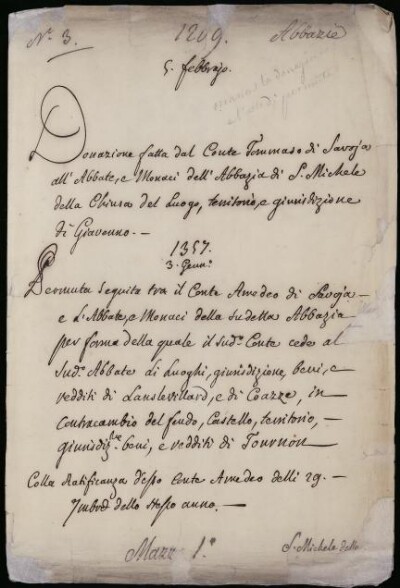 N.º 3. 1209. Abbazie
5. febbrajo.
Donazione fatta dal Conte Tommaso di Savoja
all'Abbate, e Monaci dell'Abbazia di S. Michele
della Chiusa del Luogo, territorio, e giurisdizione
di Giavenno. —
1357.
3. Genn.º
Permuta seguita tra il Conte Amedeo di Savoja —
e L'Abbate, e Monaci della sudetta Abbazia
per forma della quale il sud.º Conte cede al
Sud.º Abbate li Luoghi, giurisdizione, beni, e
redditi di Lanslevillard, e di Coazze, in
contracambio del feudo, Castello, territorio, —
giurisdiz.ne beni, e redditi di Tournon —
Colla Ratificanza d'esso Conte Amedeo delli 29. —
Xmbre dello stesso anno. —
Mazzo 1.º S. Michele della